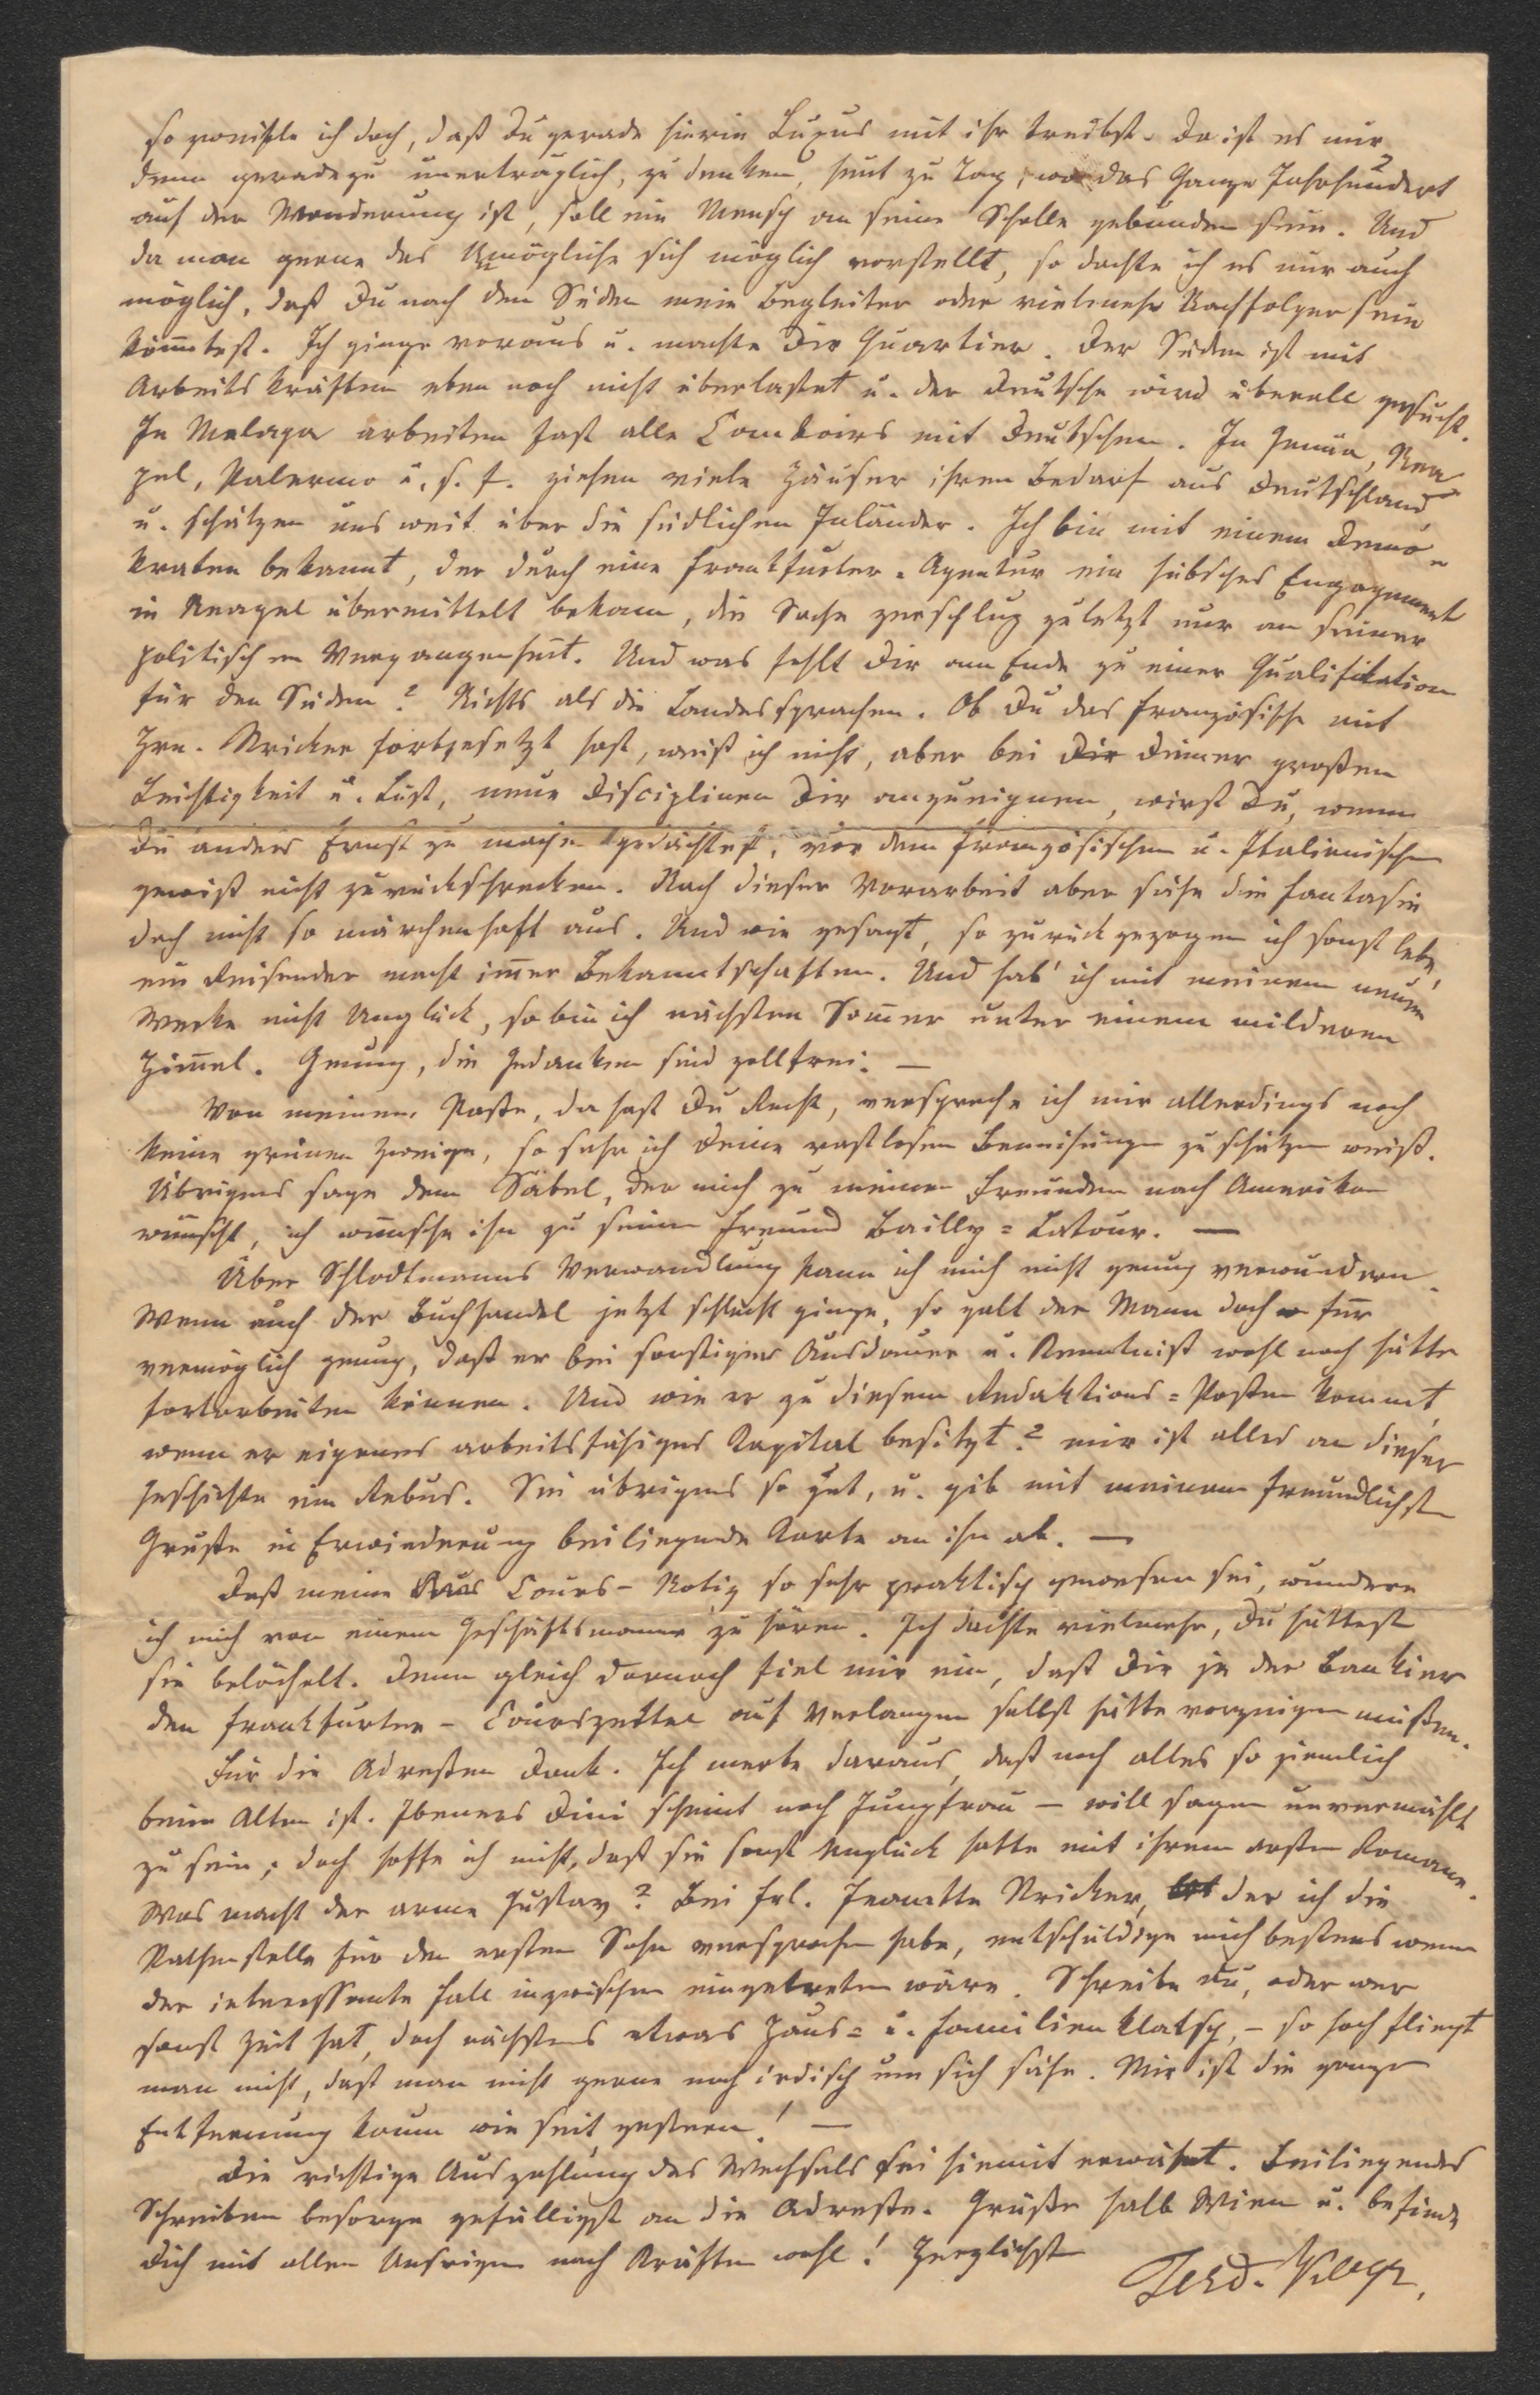 so zweifle ich doch, daß Du gerade hierin Luxus mit ihr treibst. Da ist es mir
denn geradezu unerträglich, zu denken, heut zu Tag, wo das Ganze Jahrhundert
auf der Wanderung ist, soll ein Mensch an seine Scholle gebunden sein. Und
da man gerne das Unmögliche sich möglich vorstellt, so dachte ich es mir auch
möglich, daß Du nach dem Süden mein Begleiter oder vielmehr Nachfolger sein
köñtest. Ich ginge voraus u. machte Dir Quartier. Der Süden ist mit
Arbeitskräften eben noch nicht überlastet u. der Deutsche wird überall gesucht.
In Malaga arbeiten fast alle Comtoirs mit Deutschen. In Genua, Nea
pel, Palermo u. s. f. ziehen viele Häuser ihren Bedarf aus Deutschland
u. schätzen uns weit über die südlichen Inländer. Ich bin mit einem Demo-
kraten bekannt, der durch eine Frankfurter-Agentur ein hübsches Engagement
in Neapel übermittelt bekam, die Sache zerschlug zuletzt nur an seiner
politischen Vergangenheit. Und was fehlt Dir am Ende zu einer Qualifikation
für den Süden? Nichts als die Landessprachen. Ob Du das französische mit
Hrn. Stricker fortgesetzt hast, weiß ich nicht, aber bei Dir Deiner großen
Leichtigkeit u. Lust, neue Disciplinen Dir anzueignen, wirst Du, wenn
Du anders Ernst zu machen gedächtest, vor dem Französischen u. Italienischen
gewiß nicht zurückschrecken. Nach dieser Vorarbeit aber sähe die Fantasie
doch nicht so märchenhaft aus. Und wie gesagt, so zurückgezogen ich sonst lebe,
ein Reisender macht im̃er Bekanntschaften. Und hab' ich mit meinem neuen
Werke nicht Unglück, so bin ich nächsten Som̃er unter einem milderen
Him̃el. Genug, die Gedanken sind zollfrei. —
Von meinem Paße, da hast Du Recht, verspreche ich mir allerdings noch
keine grünen Zweige, so sehr ich Deine rastlosen Bemühungen zu schätzen weiß.
Übrigens sage dem Säbel, der mich zu meinen Freunden nach Amerika
wünscht, ich wünsche ihn zu seinem Freund Bailly=Latour. —
Über Schlodtmanns Verwandlung kann ich mich nicht genug verwundern.
Wenn auch der Buchhandel jetzt schlecht ginge, so galt der Mann doch für
vermöglich genug, daß er bei sonstiger Ausdauer u. Kenntniß wohl noch hätte
fortarbeiten können. Und wie er zu diesem Redaktions=Posten kommt,
wenn er eigenes arbeitsfähiges Kapital besitzt? mir ist alles an dieser
Geschichte ein Rebus. Sei übrigens so gut, u. gib mit meinem freundlichsten
Gruße in Erwiederung beiliegende Karte an ihn ab. —
Daß meine Cours-Notiz so sehr praktisch gewesen sei, wundere
ich mich von einem Geschäftsmanne zu hören. Ich dachte vielmehr, Du hättest
sie belächelt. Denn gleich darnach fiel mir ein, daß Dir ja der Bankier
den Frankfurter-Courszettel auf Verlangen selbst hätte vorzeigen müßen.
Für die Adreßen Dank. Ich merke daraus, daß noch alles so ziemlich
beim Alten ist. Ibeners Dini scheint noch Jungfrau — will sagen unvermählt
zu sein; doch hoffe ich nicht, daß sie sonst Unglück hatte mit ihrem ersten Romane.
Was macht der arme Gustav? Bei Frl. Jeanette Stricker, der ich die
Pathenstelle für den ersten Sohn versprochen habe, entschuldige mich bestens wenn
der interessante Fall inzwischen eingetreten wäre. Schreibe Du, oder wer
sonst Zeit hat, doch nächstens etwas Haus= u. Familienklatsch, — so hoch fliegt
man nicht, daß man nicht gerne noch irdisch um sich sähe. Mir ist die ganze
Entfernung kaum wie seit gestern! —
Die richtige Auszahlung des Wechsels sei hiemit erwähnt. Beiliegendes
Schreiben besorge gefälligst an die Adreße. Grüße halb Wien u. befinde
Dich mit allen Unsrigen nach Kräften wohl! Herzlichst
Ferd. Klbgr.